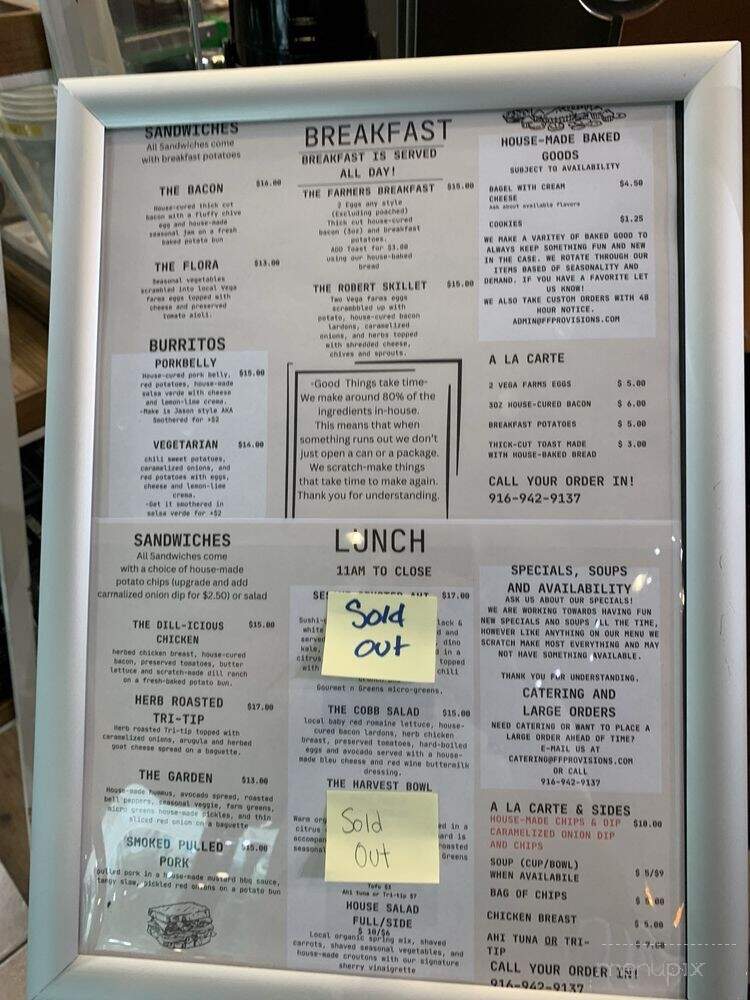 SANDWICHES
All Sandwiches come
with breakfast potatoes
THE BACON $16.00
House-cured thick cut
bacon with a fluffy chive
egg and house-made
seasonal jam on a fresh
baked potato bun
THE FLORA $13.00
Seasonal vegetables
scrambled into local Vega
farms eggs topped with
cheese and preserved
tomato aioli.
BURRITOS
PORKBELLY
House-cured pork belly, $15.00
red potatoes, house-made
salsa verde with cheese
and lemon-lime crema.
-Make is Jason style AKA
Smothered for +$2
VEGETARIAN $14.00
chili sweet potatoes,
caramelized onions, and
red potatoes with eggs,
cheese and lemon-lime
crema.
-Get it smothered in
salsa verde for +$2
BREAKFAST
BREAKFAST IS SERVED
ALL DAY!
THE FARMERS BREAKFAST $15.00
2 Eggs any style
(Excluding poached)
Thick cut house-cured
bacon (3oz) and breakfast
potatoes.
ADD Toast for $3.00
using our house-baked
bread
THE ROBERT SKILLET $15.00
Two Vega farms eggs
scrambbled up with
potato, house-cured bacon
lardons, caramelized
onions, and herbs topped
with shredded cheese,
chives and sprouts.
-Good Things take time-
We make around 80% of the
ingredients in-house.
This means that when
something runs out we don't
just open a can or a package.
We scratch-make things
that take time to make again.
Thank you for understanding.
HOUSE-MADE BAKED
GOODS
SUBJECT TO AVAILABILITY
BAGEL WITH CREAM $4.50
CHEESE
Ask about available flavors
COOKIES $1.25
WE MAKE A VARITEY OF BAKED GOOD TO
ALWAYS KEEP SOMETHING FUN AND NEW
IN THE CASE. WE ROTATE THROUGH OUR
ITEMS BASED OF SEASONALITY AND
DEMAND, IF YOU HAVE A FAVORITE LET
US KNOW!
WE ALSO TAKE CUSTOM ORDERS WITH 48
HOUR NOTICE.
ADMIN@FFPROVISIONS.COM
A LA CARTE
2 VEGA FARMS EGGS $ 5.00
3OZ HOUSE-CURED BACON $ 6.00
BREAKFAST POTATOES $ 5.00
THICK-CUT TOAST MADE $ 3.00
WITH HOUSE-BAKED BREAD
CALL YOUR ORDER IN!
916-942-9137
SANDWICHES
All Sandwiches come
with a choice of house-made
potato chips (upgrade and add
carmalized onion dip for $2.50) or salad
THE DILL-ICIOUS $15.00
CHICKEN
herbed chicken breast, house-cured
bacon, preserved tomatoes, butter
lettuce and scratch-made dill ranch
on a fresh-baked potato bun.
HERB ROASTED $17.00
TRI-TIP
Herb roasted Tri-tip topped with
caramelized onions, arugula and herbed
goat cheese spread on a baguette.
THE GARDEN $13.00
House-made hummus, avocado spread, roasted
bell peppers, seasonal veggie, farm greens,
micro greens house-made pickles, and thin
sliced red onion on a baguette
SMOKED PULLED $15.00
PORK
pulled pork in a house-made mustard bbq sauce,
tangy slaw, pickled red onions on a potato bun
LUNCH
11AM TO CLOSE
$17.00
Sold
out
Gourmet n Greens micro-greens.
THE COBB SALAD $15.00
local baby red romaine lettuce, house-
cured bacon lardons, herb chicken
breast, preserved tomatoes, hard-boiled
eggs and avocado served with a house-
made bleu cheese and red wine buttermilk
dressing.
THE HARVEST BOWL
Sold
Out
Tofu $3
Ahi tuna or Tri-tip $7
HOUSE SALAD
FULL/SIDE
$ 10/$6
Local organic spring mix, shaved
carrots, shaved seasonal vegetables, and
house-made croutons with our signature
sherry vinaigrette
SPECIALS, SOUPS
AND AVAILABILITY
ASK US ABOUT OUR SPECIALS!
WE ARE WORKING TOWARDS HAVING FUN
NEW SPECIALS AND SOUPS ALL THE TIME,
HOWEVER LIKE ANYTHING ON OUR MENU WE
SCRATCH MAKE MOST EVERYTHING AND MAY
NOT HAVE SOMETHING AVAILABLE.
THANK YOU FOR UNDERSTANDING.
CATERING AND
LARGE ORDERS
NEED CATERING OR WANT TO PLACE A
LARGE ORDER AHEAD OF TIME?
E-MAIL US AT
CATERING@FFPROVISIONS.COM
OR CALL
916-942-9137
A LA CARTE & SIDES
HOUSE-MADE CHIPS & DIP $10.00
CARAMELIZED ONION DIP
AND CHIPS
SOUP (CUP/BOWL) $ 5/$9
WHEN AVAILABILE
BAG OF CHIPS
CHICKEN BREAST $ 5.00
AHI TUNA OR TRI- $ 7.00
TIP
CALL YOUR ORDER IN!
916-942-9137
menupix